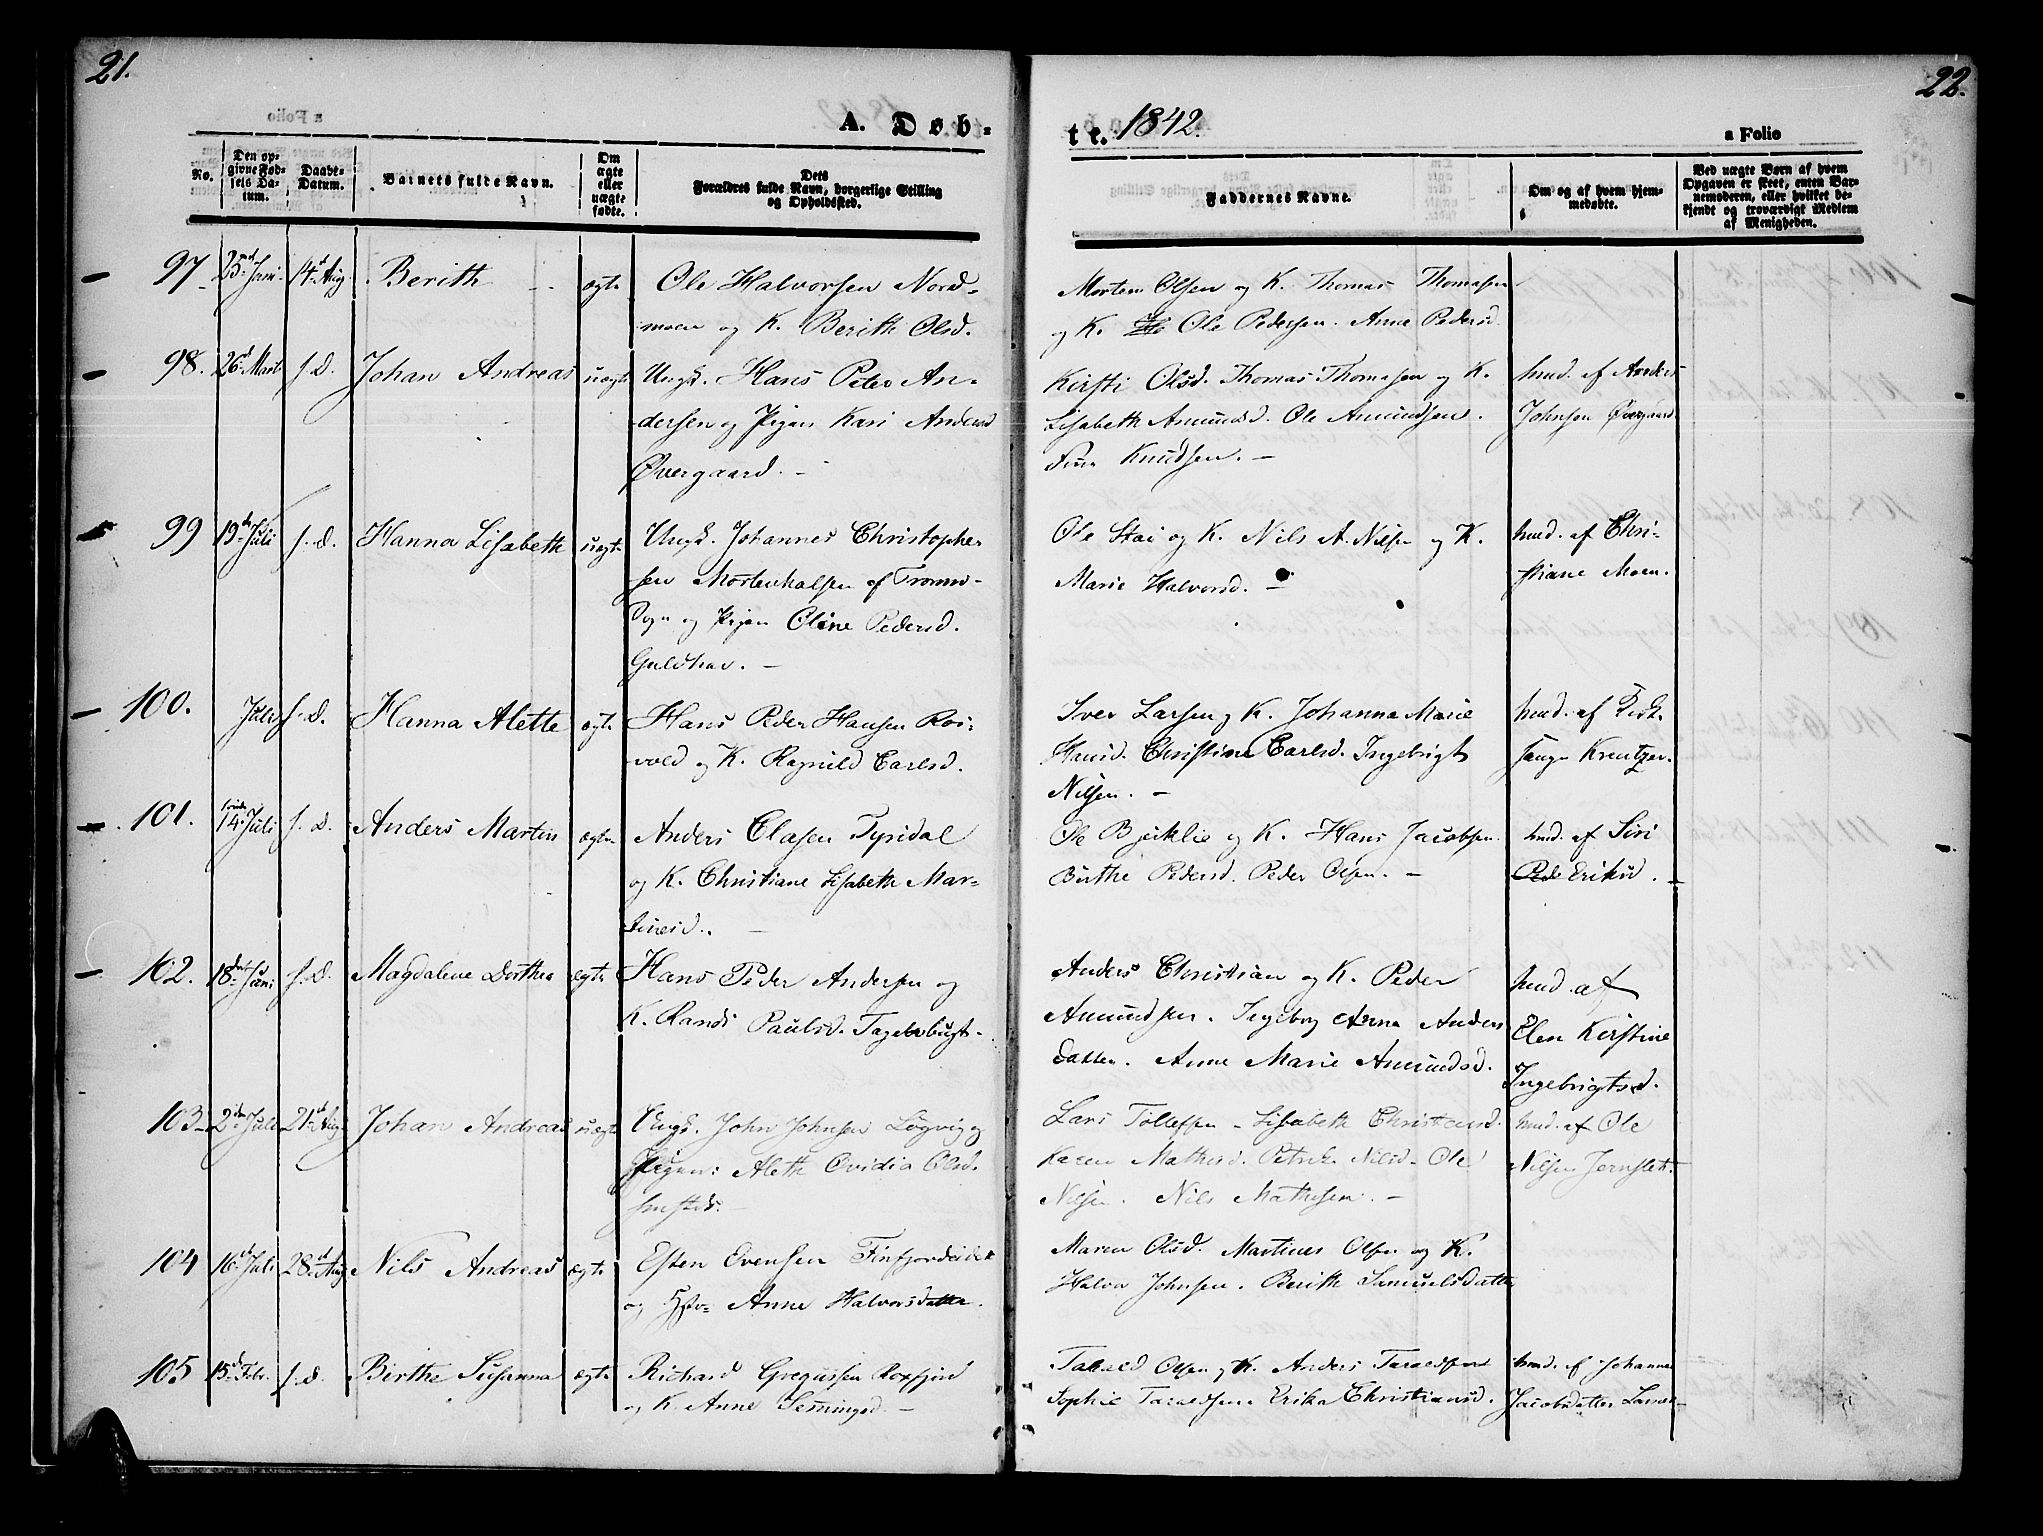 21.
22.
A. Døb-
te. 1842.
a Folio
No.
Den op-
givne Fød-
sels Da-
tum.
Daabs-
Datum.
Barnets fulde Navn.
Om
ægte
eller
uægte
fødte.
Dets
Forældres fulde Navn, borgerlige Stilling
og Opholdssted.
Faddernes Navne.
Om og af hvem hjem-
medøbte.
Ved uægte Børn af hvem
Opgaven er skeet, enten Bar-
nemoderen, eller hvilket be-
kjendt og troværdigt Medlem
af Menigheden.
97 25d Juni 14d Aug. Berith ægte
Ole Halvorsen Nord-
moen og K. Berith Olsd.
Morten Olsen og K. Thomas Thomasen
og K. Ole Pedersen. Anne Pedersd.
98. 26d Marts s. D. Johan Andreas uægte
Ungk. Hans Peter An-
dersen og Pigen Kari Andersd
Øvergaard. -
Kirsti Olsd. Thomas Thomasen og K.
Lisabeth Amundsd. Ole Amundsen.
Finn Knudsen. -
hmd. af Anders
Johnsen Øvergaard
99 19de Juli s. d. Hanna Lisabeth uægte
Ungk. Johannes Christopher
sen Mortenhalsen af Tromsø-
Sogn og Pigen Oline Pedersd.
Guldhav. -
Ole Stai og K. Nils A. Nilsen og K.
Marie Halvorsd. -
hmd. af Chri-
stiane Moen.
100. Juli s. D. Hanna Alette ægte
Hans Peder Hansen Ros-
vold og K. Ragnild Carlsd.
Iver Larsen og K. Johanna Marie
Hansd. Christina Carlsd. Ingebrigt
Nilsen. -
hmd. af Kirk-
sanger Kreutzer.
101. 14. Juli s. D. Anders Martin ægte
Anders Olasen Tyridal
og K. Christiane Lisabeth Mar-
tinesd.
Ole Bjerklie og K. Hans Jacobsen
Birthe Pedersd. Peder Olsen. -
hmd. af Siri
Eriksd. -
102. 18de Juni s. D. Magdalene Dorthea ægte
Hans Peder Andersen og
K. Randi Paulsd.
Anders Christian og K. Peder
Amundsen. Ingeborg Anna Anders
datter. Anne Marie Amundsd.
hmd. af
Elen Kirstine
Ingebrigtsd.
103 2den Juli 21d Aug. Johan Andreas uægte
Ungk. John Johnsen Løgvig og
Pigen: Aleth Ovidia Olsd.
Lars Tollefsen - Lisabeth Christansd.
Karen Mathisd. Petrike Nilsd. Ole
Nilsen. Nils Mathisen. -
hmd. af Ole
Nilsen Jernslet.
104 16d Juli 28d Aug. Nils Andreas ægte
Esten Evensen Finfjordeidet
og Hstr. Anne Halvorsdatter.
Maren Olsd. Martines Olsen og K.
Halvor Johnsen. Berith Samuelsdatter
105 15de Febr. s. d. Birthe Susanna ægte
Richard Gregussen Roxfjord
og K. Anne Semmingsd. -
Tarald Olsen og K. Anders Taraldsen
Sophie Taraldsen. Erika Christiansd.
hmd. af Johanna
Jacobsdatter